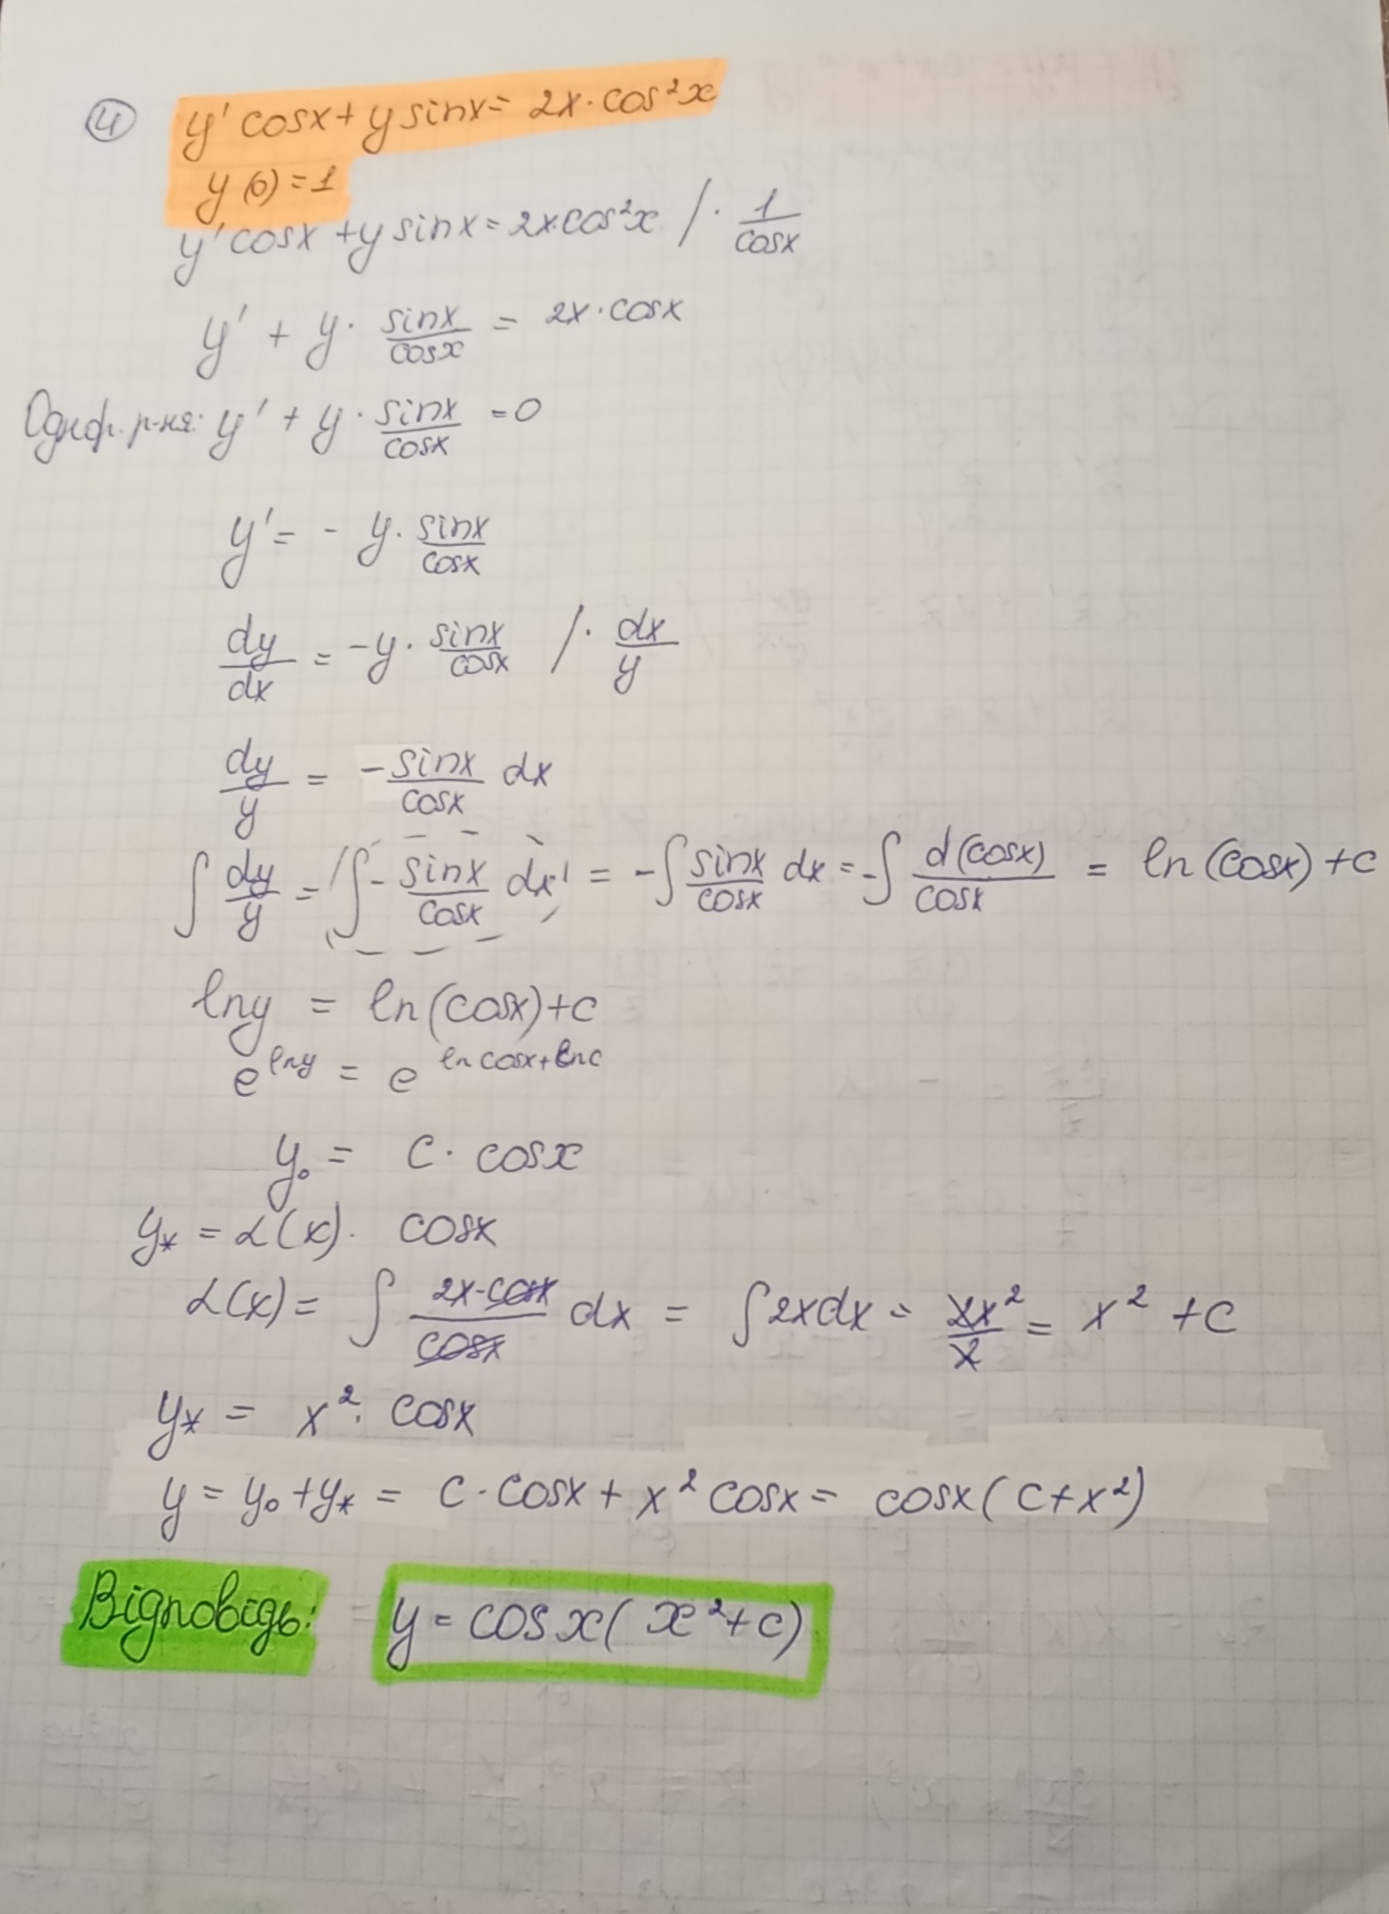 ④ y' cosx + y sinx = 2x · cos²x
y(0) = 1
y' cosx + y sinx = 2x·cos²x / · 1/cosx
y' + y · sinx/cosx = 2x · cosx
Однор. р-ня: y' + y · sinx/cosx = 0
y' = - y · sinx/cosx
dy/dx = -y · sinx/cosx / · dx/y
dy/y = - sinx/cosx dx
∫ dy/y = ∫ - sinx/cosx dx = -∫ sinx/cosx dx = -∫ d(cosx)/cosx = ln(cosx) + c
lny = ln(cosx) + c
e^(lny) = e^(ln cosx + lnc)
y₀ = c · cosx
y* = α(x) · cosx
α(x) = ∫ 2x·cosx/cosx dx = ∫ 2xdx = 2x²/2 = x² + c
y* = x² · cosx
y = y₀ + y* = c · cosx + x² cosx = cosx (c + x²)
Відповідь: y = cos x (x² + c)